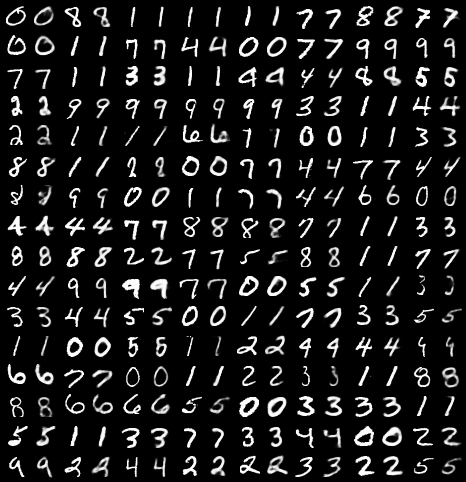 0 0 8 8 1 1 1 1 1 1 7 7 8 8 7 7
0 0 1 1 7 7 4 4 0 0 7 7 9 9 9 9
7 7 1 1 3 3 1 1 4 4 4 4 8 8 5 5
2 2 9 9 9 9 9 9 9 9 3 3 1 1 4 4
2 2 1 1 1 1 6 6 7 1 0 0 1 1 3 3
8 8 1 1 2 2 0 0 7 7 4 4 7 7 4 4
8 9 9 0 0 1 1 7 7 4 4 6 6 0 0
4 4 4 4 7 7 8 8 8 8 7 7 1 1 3 3
8 8 8 8 2 2 7 7 5 5 8 8 1 1 7 7
4 4 9 9 9 9 7 7 0 0 5 5 1 1 3 3
3 3 4 4 5 5 0 0 1 1 7 7 3 3 5 5
1 1 0 0 5 5 1 1 2 2 9 9 4 4 9 9
6 6 7 7 0 0 1 1 2 2 3 3 1 1 8 8
8 8 6 6 6 6 5 5 0 0 3 3 3 3 1 1
5 5 1 1 3 3 7 7 3 3 4 4 0 0 2 2
9 9 2 2 4 4 2 2 2 2 3 3 2 2 5 5